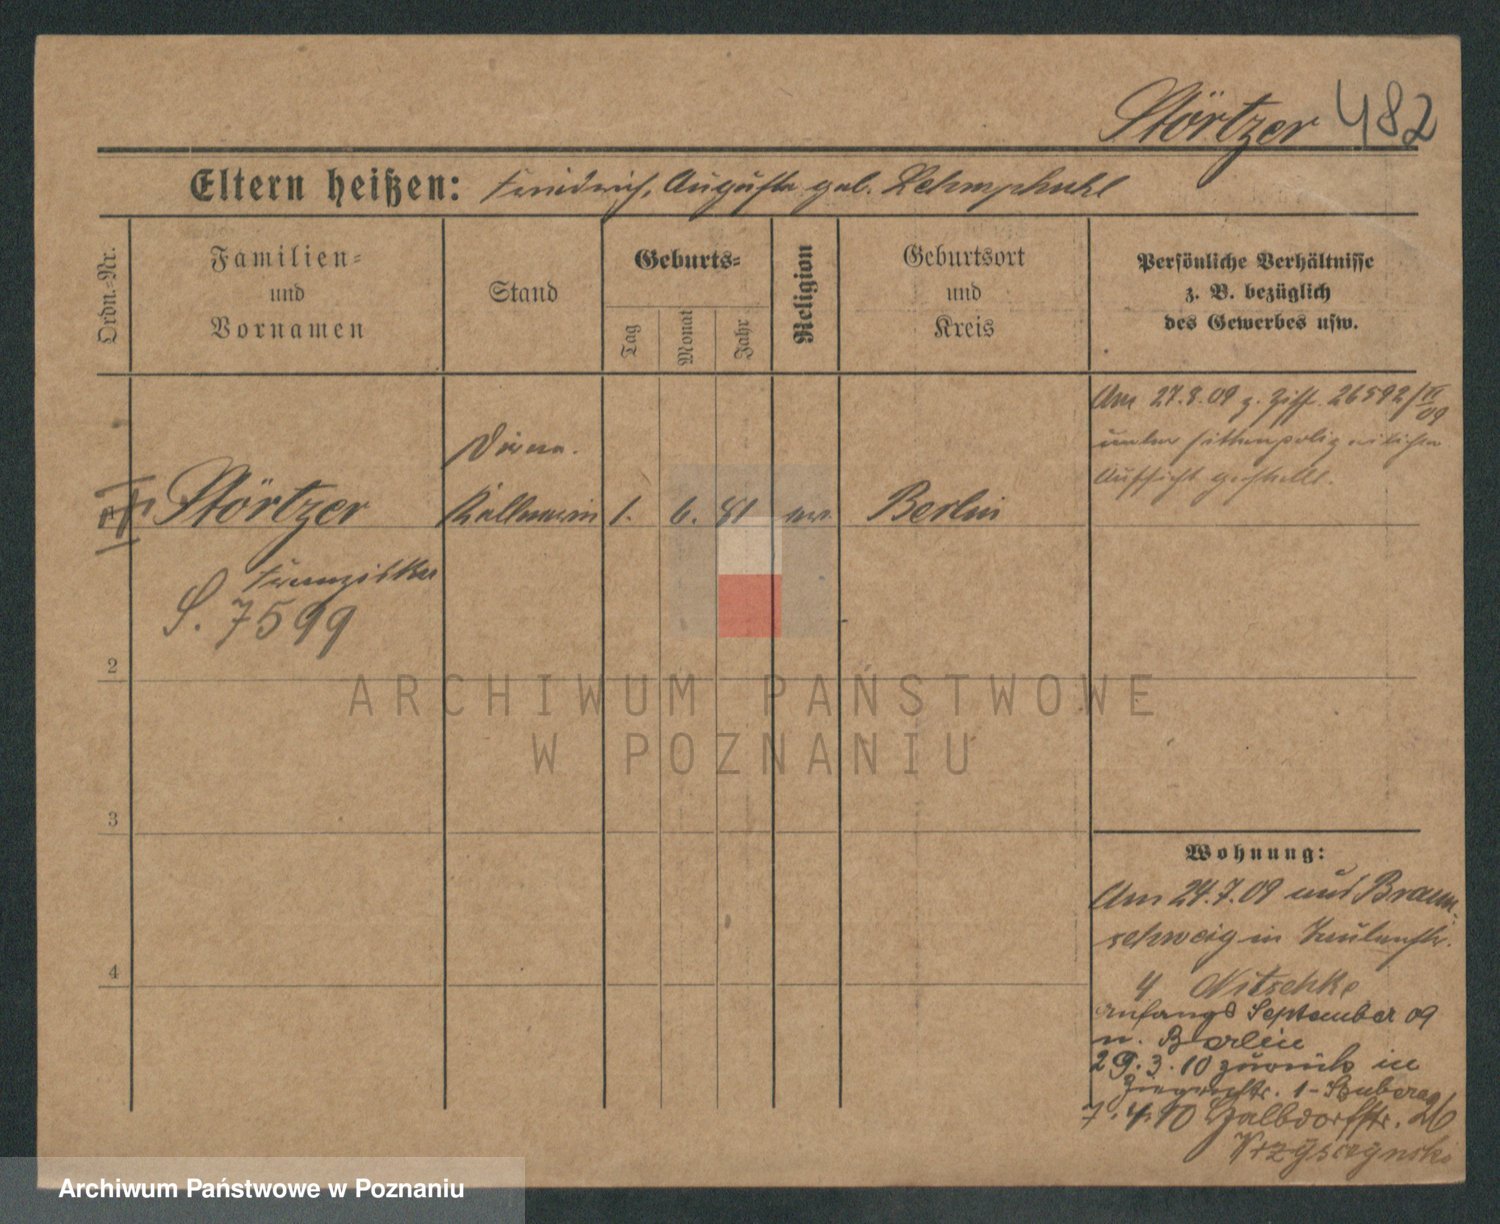 Störtzer 482
Eltern heißen: Friedrich, Auguste geb. Lehmphuhl
Ordn.-Nr.
Familien-
und
Vornamen
Stand
Geburts-
Tag
Monat
Jahr
Religion
Geburtsort
und
Kreis
Persönliche Verhältnisse
z. B. bezüglich
des Gewerbes usw.
Am 27.8.09 z. Ziff. 26592/IV 09
unter sittenpolizeilicher
Aufsicht gestellt.
Dirne.
Störtzer Kellnerin 1. 6. 81 ev. Berlin
Franziska
S. 7599
2
3
4
ARCHIWUM PAŃSTWOWE
W POZNANIU
Wohnung:
Am 24.7.09 aus Braun-
schweig in
4 Nitschke
anfangs September 09
n. Berlin
29.3.10 zurück in
1-
7.4.10 Halbdorfstr. 26
Krzyszynski
Archiwum Państwowe w Poznaniu